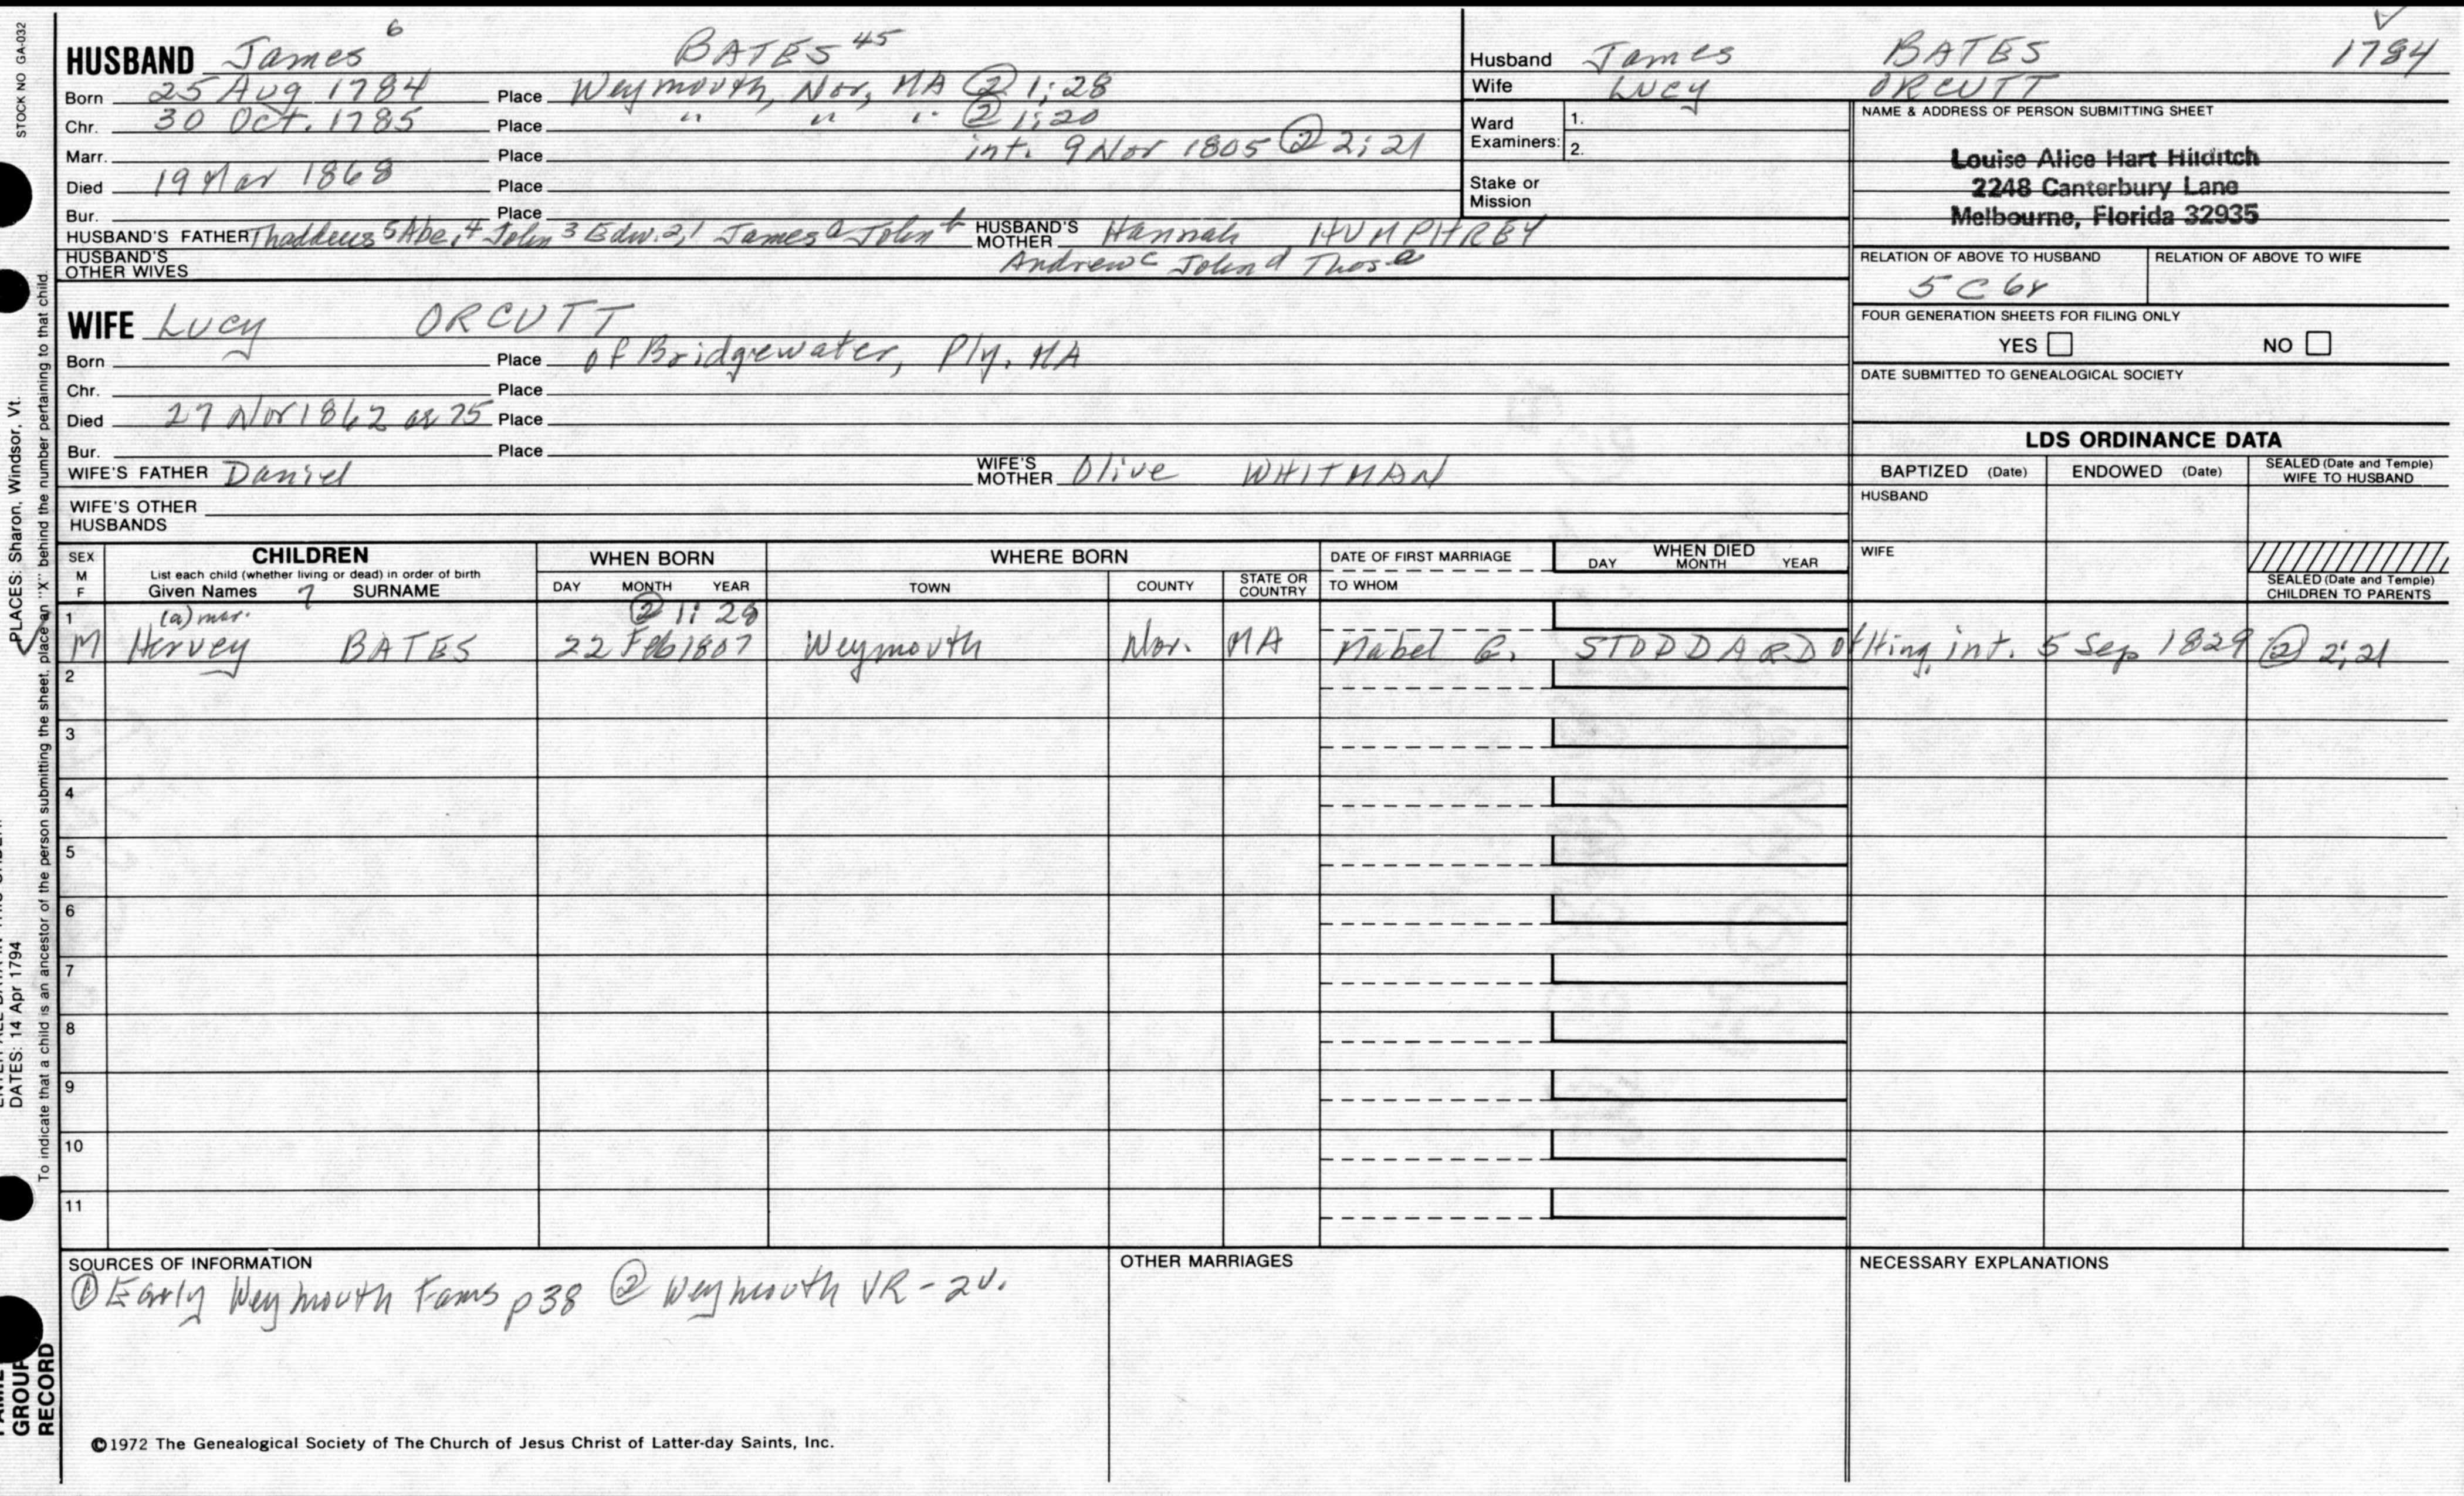 STOCK NO GA-032
HUSBAND James 6 BATES 45
Born 25 Aug 1784 Place Weymouth, Nor, MA ② 1:28
Chr. 30 Oct. 1785 Place " " " ② 1:20
Marr. Place int. 9 Nov 1805 ② 2:21
Died 19 Mar 1868 Place
Bur. Place
HUSBAND'S FATHER Thaddeus 5 Abe. 4 John 3 Edw. 2,1 James a John b HUSBAND'S MOTHER Hannah HUMPHREY
HUSBAND'S OTHER WIVES Andrew c John d Thos e
WIFE Lucy ORCUTT
Born Place of Bridgewater, Ply. MA
Chr. Place
Died 27 Nov 1862 ae 75 Place
Bur. Place
WIFE'S FATHER Daniel WIFE'S MOTHER Olive WHITMAN
WIFE'S OTHER HUSBANDS
Husband James BATES 1784
Wife Lucy ORCUTT
Ward Examiners: 1.
2.
Stake or Mission
NAME & ADDRESS OF PERSON SUBMITTING SHEET
Louise Alice Hart Hilditch
2248 Canterbury Lane
Melbourne, Florida 32935
RELATION OF ABOVE TO HUSBAND RELATION OF ABOVE TO WIFE
5 C 6r
FOUR GENERATION SHEETS FOR FILING ONLY
YES NO
DATE SUBMITTED TO GENEALOGICAL SOCIETY
LDS ORDINANCE DATA
BAPTIZED (Date) ENDOWED (Date) SEALED (Date and Temple) WIFE TO HUSBAND
HUSBAND
WIFE
SEALED (Date and Temple) CHILDREN TO PARENTS
SEX M F CHILDREN WHEN BORN WHERE BORN DATE OF FIRST MARRIAGE WHEN DIED
List each child (whether living or dead) in order of birth
Given Names 7 SURNAME DAY MONTH YEAR TOWN COUNTY STATE OR COUNTRY TO WHOM DAY MONTH YEAR
1 (a) mar. ② 1:28
M Hervey BATES 22 Feb 1807 Weymouth Nor. MA Mabel C. STODDARD of Hing. int. 5 Sep 1829 ② 2:21
2
3
4
5
6
7
8
9
10
11
SOURCES OF INFORMATION OTHER MARRIAGES NECESSARY EXPLANATIONS
① Early Weymouth Fams p38 ② Weymouth VR - 2v.
©1972 The Genealogical Society of The Church of Jesus Christ of Latter-day Saints, Inc.
PLACES: Sharon, Windsor, Vt.
To indicate that a child is an ancestor of the person submitting the sheet, place an "X" behind the number pertaining to that child.
DATES: 14 Apr 1794
GROUP
RECORD